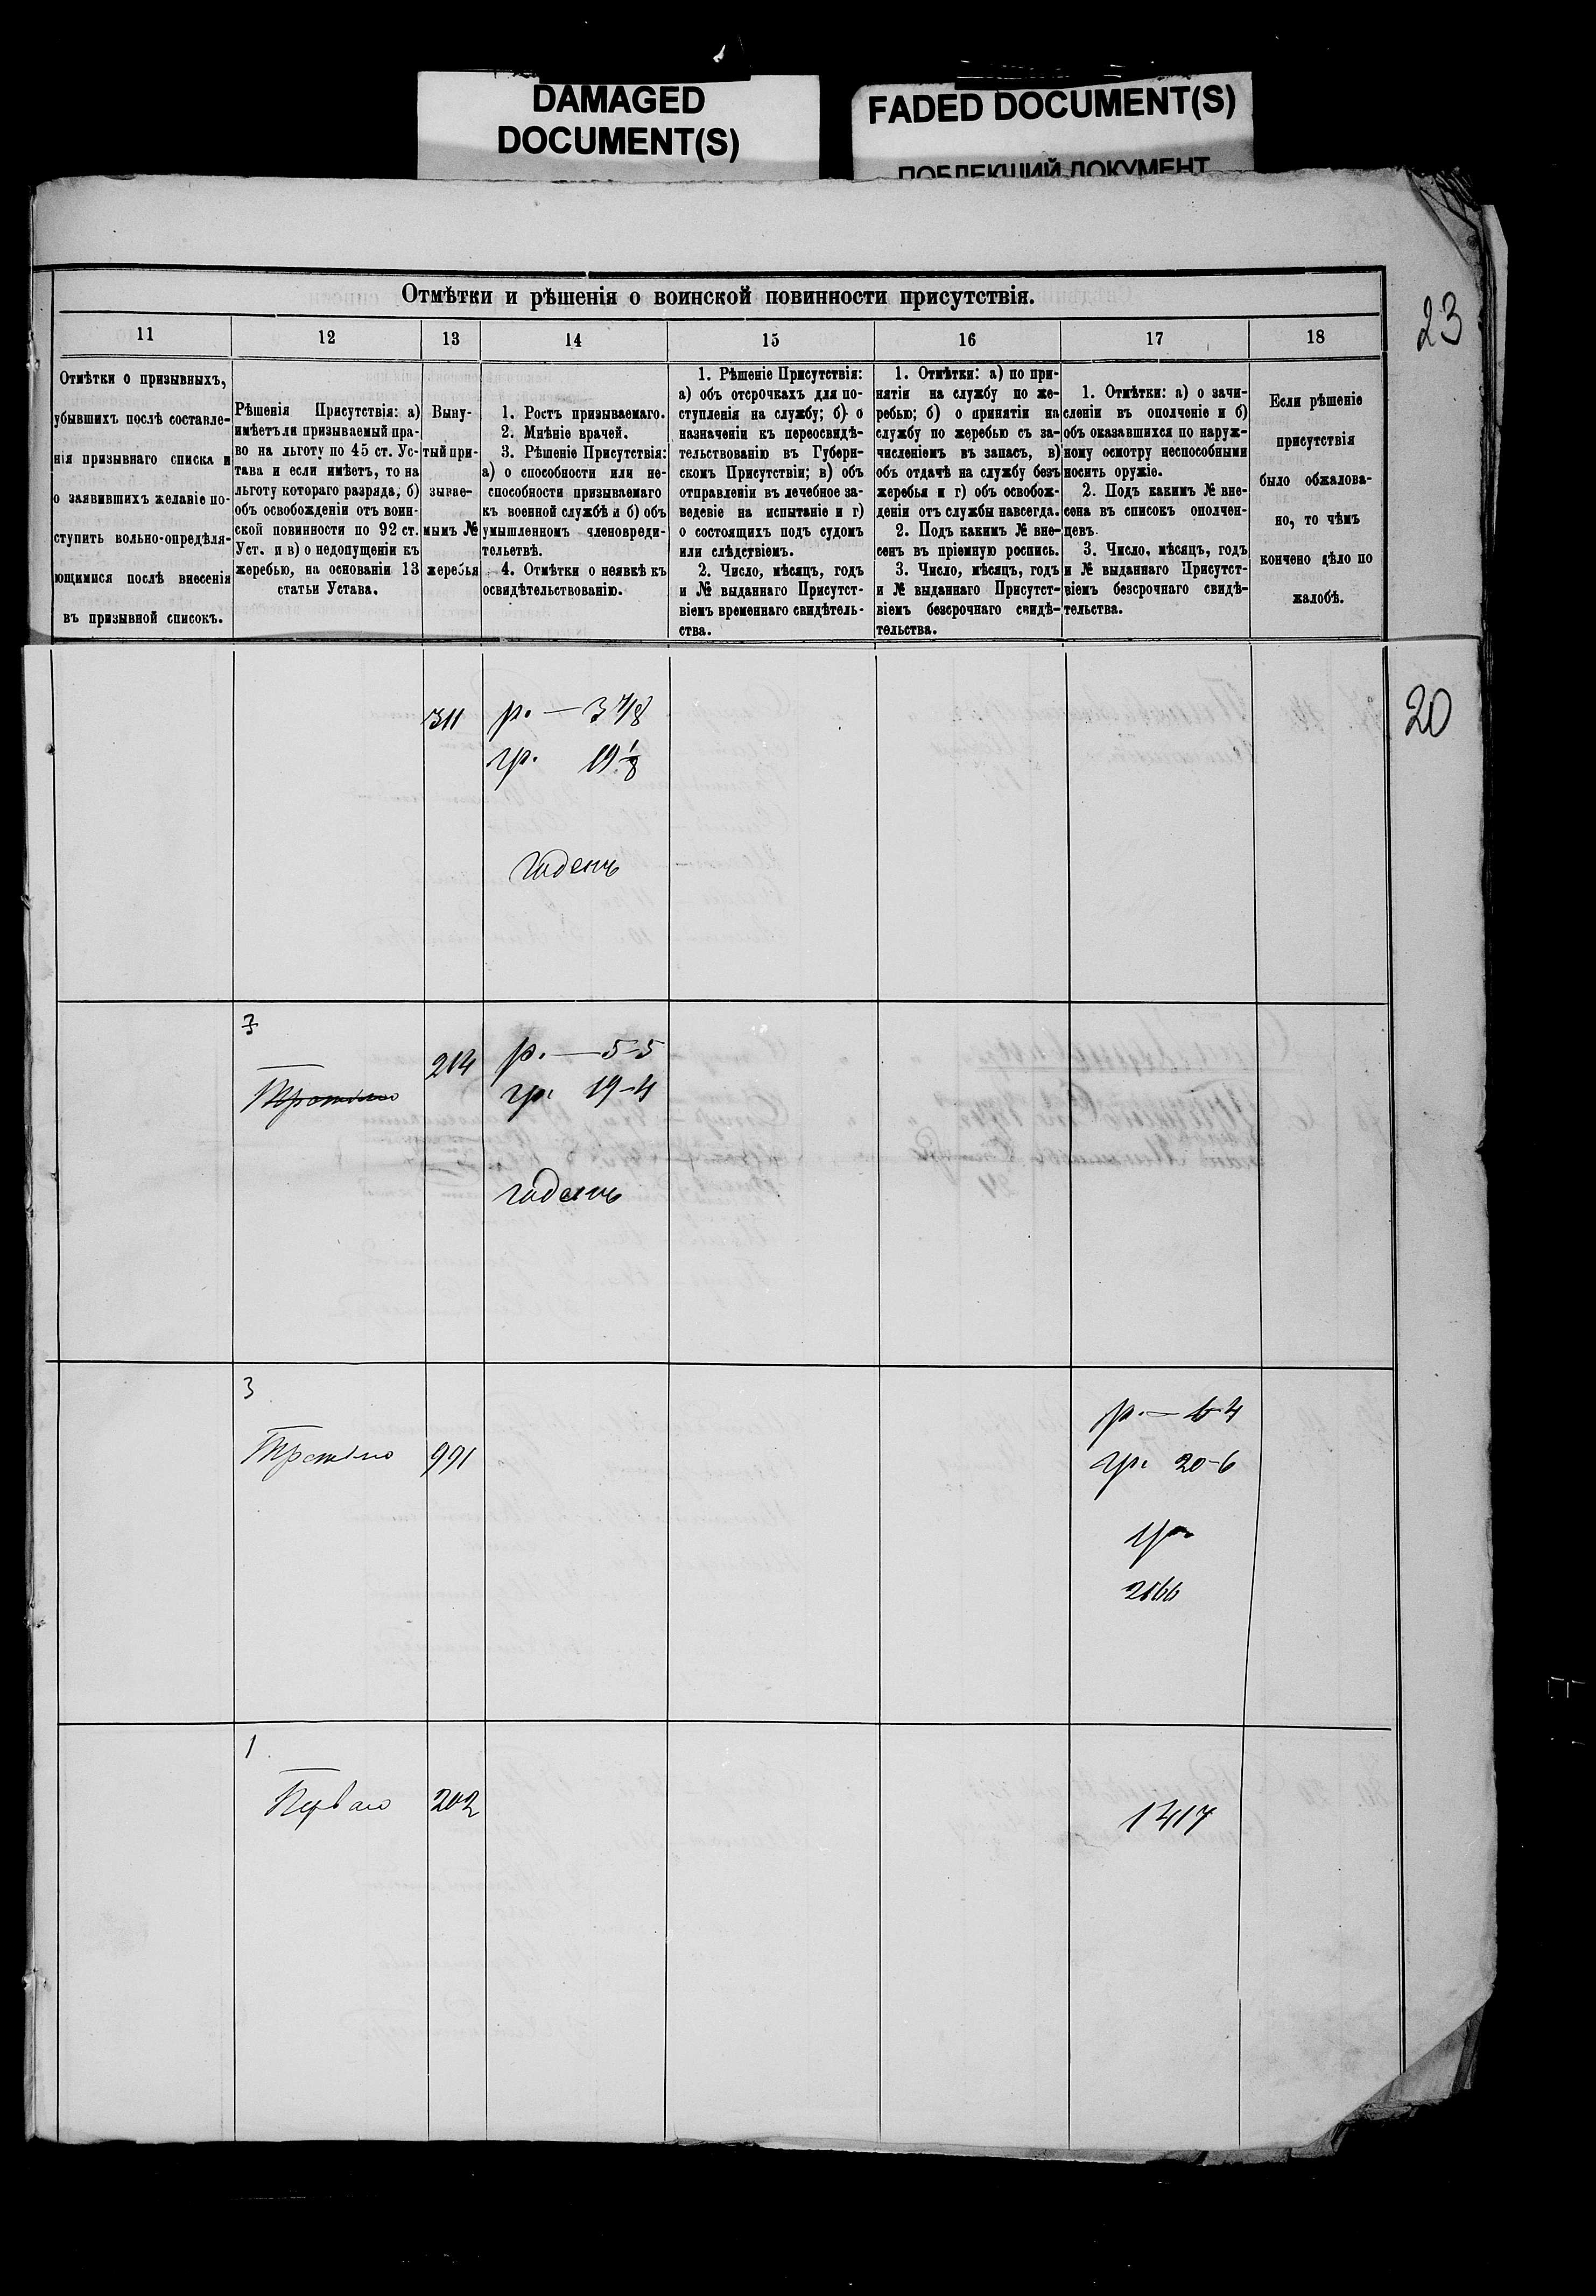 DAMAGED
DOCUMENT(S)
FADED DOCUMENT(S)
ПОБЛЕКШИЙ ДОКУМЕНТ
23
Отмѣтки и рѣшенія о воинской повинности присутствія.
11
12
13
14
15
16
17
18
Отмѣтки о призывныхъ,
убывшихъ послѣ составле-
нія призывнаго списка и
о заявившихъ желаніе по-
ступить вольно-опредѣля-
ющимися послѣ внесенія
въ призывной списокъ.
Рѣшенія Присутствія: а)
имѣетъ ли призываемый пра-
во на льготу по 45 ст. Ус-
тава и если имѣетъ, то на
льготу котораго разряда, б)
объ освобожденіи отъ воин-
ской повинности по 92 ст.
Уст. и в) о недопущеніи къ
жеребью, на основаніи 13
статьи Устава.
Выну-
тый при-
зывае-
мымъ №
жеребья
1. Ростъ призываемаго.
2. Мнѣніе врачей.
3. Рѣшеніе Присутствія:
а) о способности или не-
способности призываемаго
къ военной службѣ и б) объ
умышленномъ членовреди-
тельствѣ.
4. Отмѣтки о неявкѣ къ
освидѣтельствованію.
1. Рѣшеніе Присутствія:
а) объ отсрочкахъ для по-
ступленія на службу; б) о
назначеніи къ переосвидѣ-
тельствованію въ Губерн-
скомъ Присутствіи; в) объ
отправленіи въ лечебное за-
веденіе на испытаніе и г)
о состоящихъ подъ судомъ
или слѣдствіемъ.
2. Число, мѣсяцъ, годъ
и № выданнаго Присутст-
віемъ временнаго свидѣтель-
ства.
1. Отмѣтки: а) по при-
нятіи на службу по же-
ребью; б) о принятіи на
службу по жеребью съ за-
численіемъ въ запасъ, в)
объ отдачѣ на службу безъ
жеребья и г) объ освобож-
деніи отъ службы навсегда.
2. Подъ какимъ № вне-
сенъ въ пріемную роспись.
3. Число, мѣсяцъ, годъ
и № выданнаго Присутст-
віемъ безсрочнаго свидѣ-
тельства.
1. Отмѣтки: а) о зачи-
сленіи въ ополченіе и б)
объ оказавшихся по наруж-
ному осмотру неспособными
носить оружіе.
2. Подъ какимъ № вне-
сена въ списокъ ополчен-
цевъ.
3. Число, мѣсяцъ, годъ
и № выданнаго Присутст-
віемъ безсрочнаго свидѣ-
тельства.
Если рѣшеніе
присутствія
было обжалова-
но, то чѣмъ
кончено дѣло по
жалобѣ.
20
311
р. — 3 7/8
гр. 19 1/8
годенъ
3
214
р. — 5-5
гр. 19-4
годенъ
3
991
р. — 6-4
гр. 20-6
2166
1
Перваго
202
1417